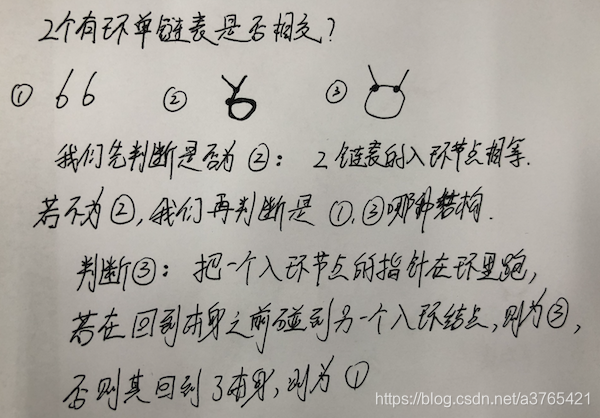 2个有环单链表是否相交?
① 66 ② ③
我们先判断是否为②: 2链表的入环节点相等.
若不为②,我们再判断是①,③哪种结构.
判断③: 把一个入环节点的指针在环里跑,
若在回到本身之前碰到另一个入环结点,则为③,
否则其回到了本身,则为①
https://blog.csdn.net/a3765421